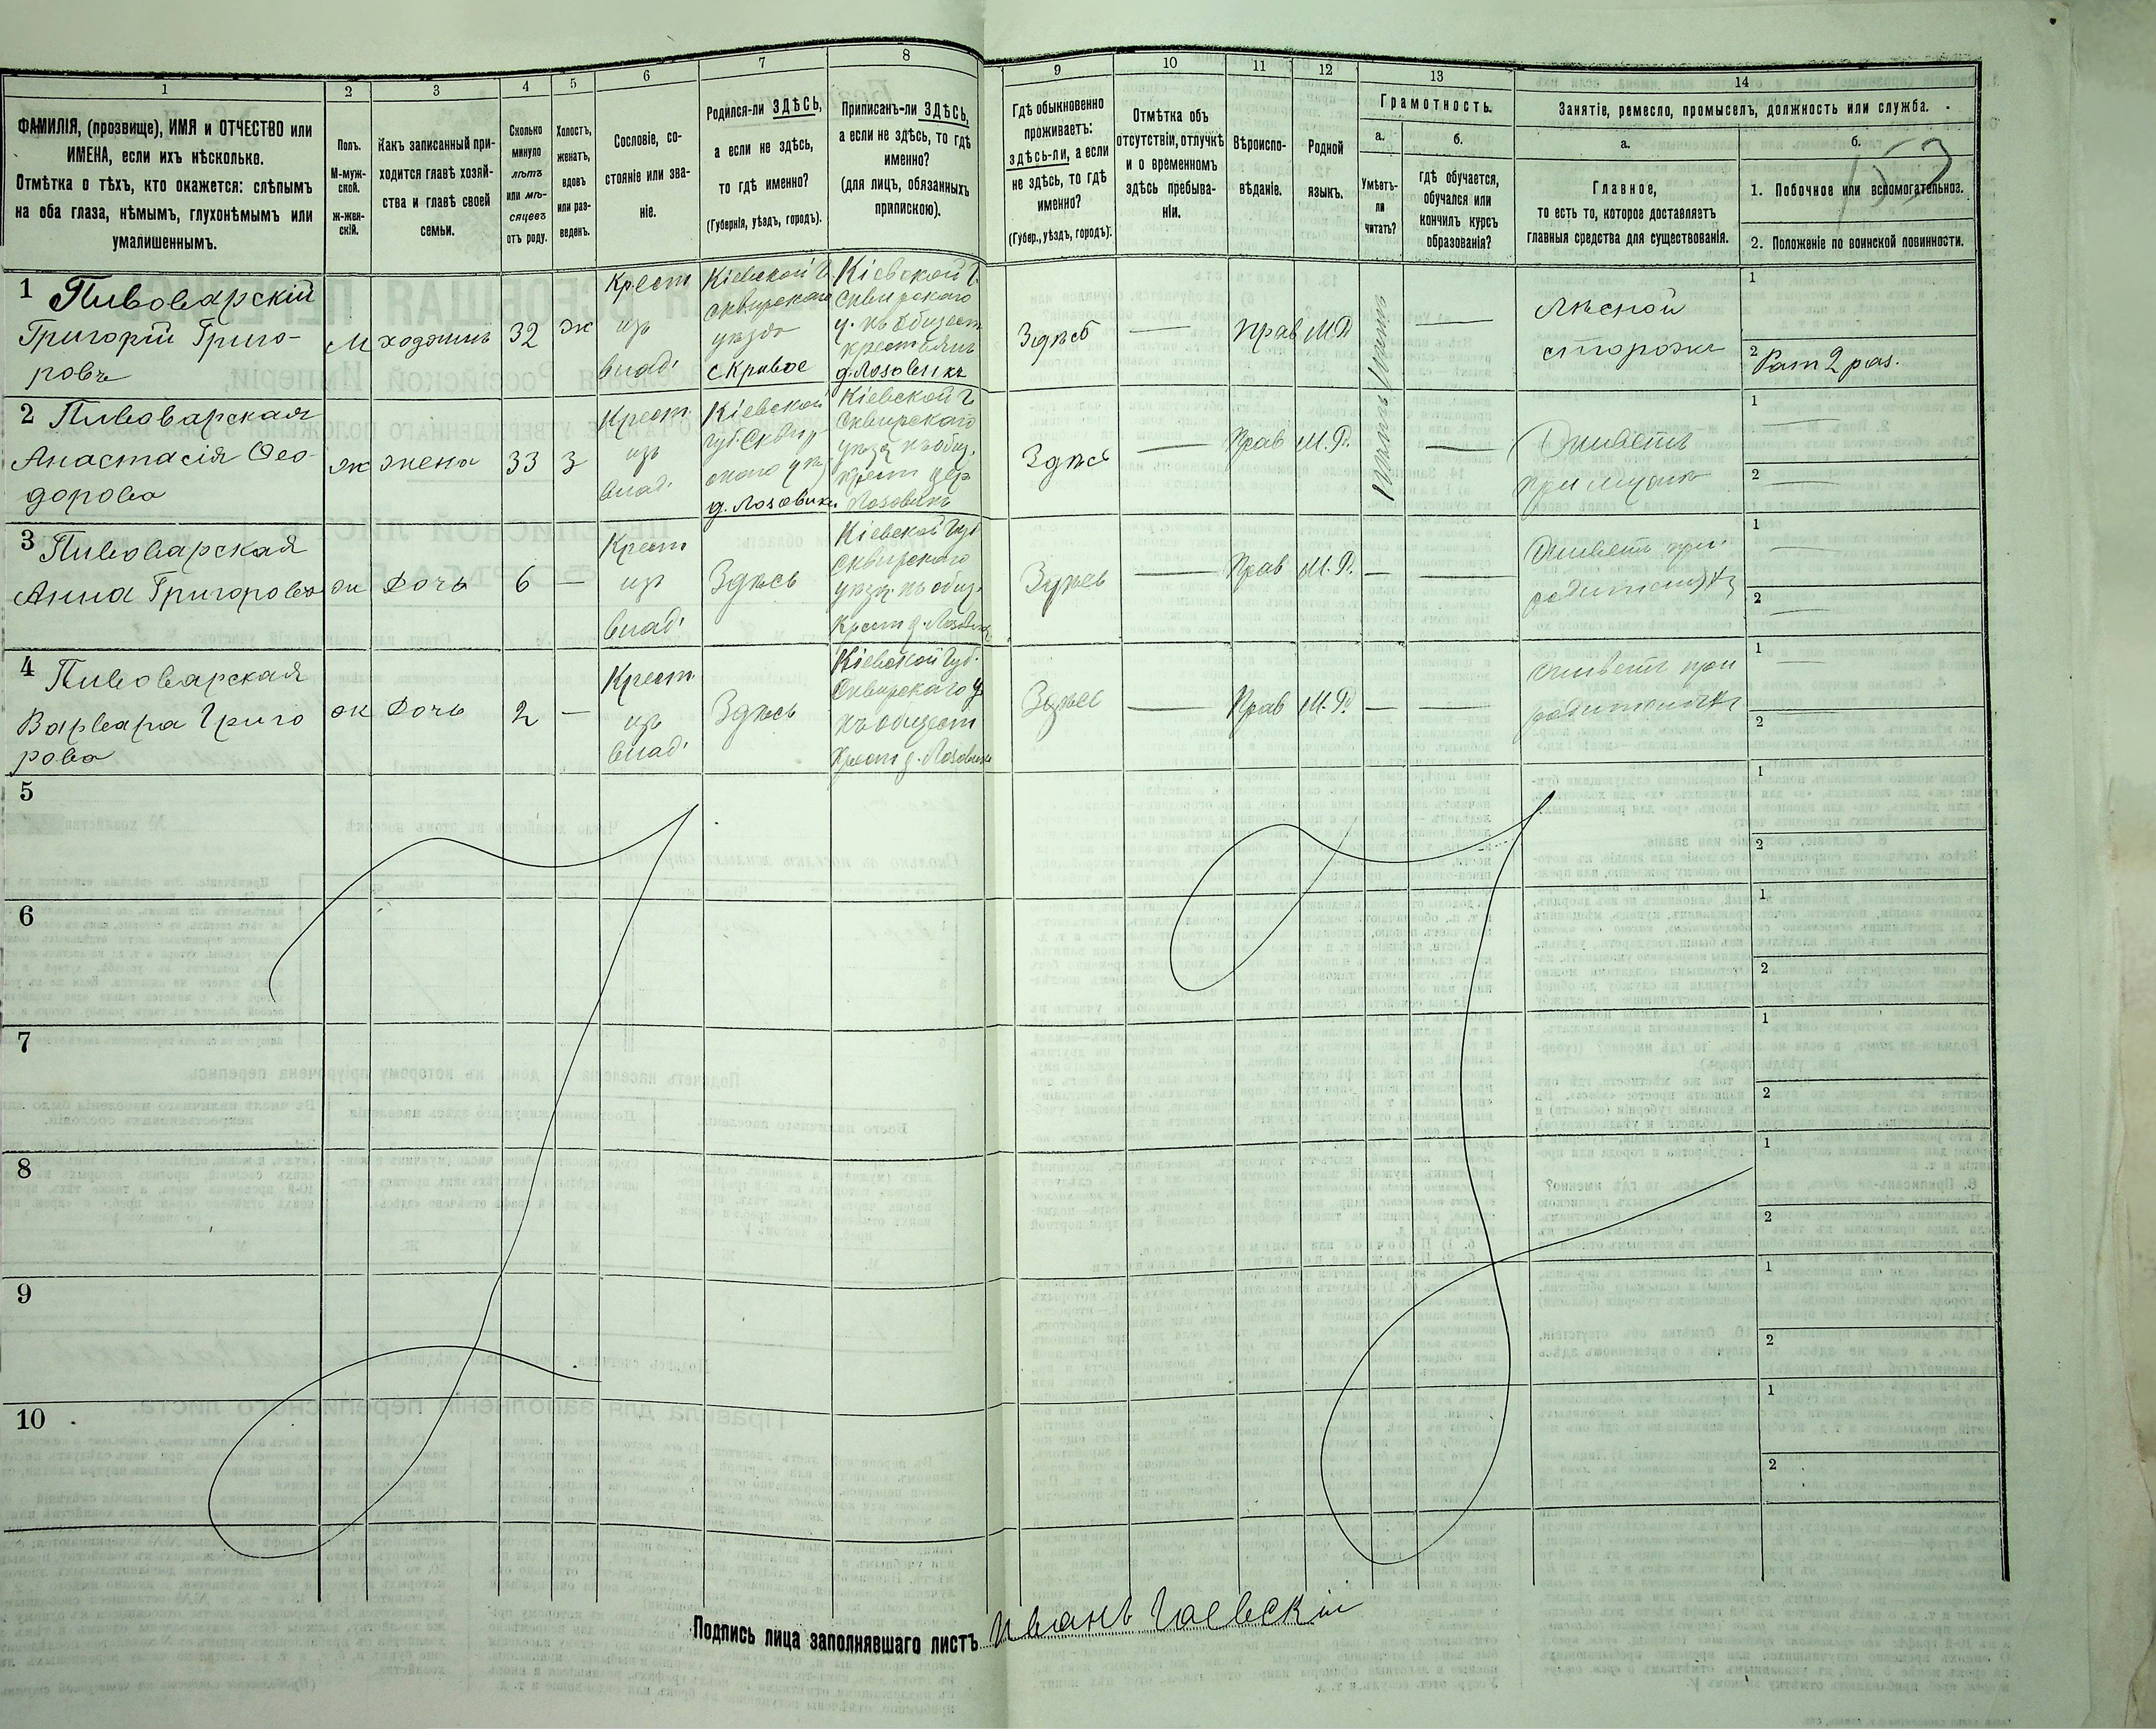 1
2
3
4
5
6
7
8
ФАМИЛІЯ, (прозвище), ИМЯ и ОТЧЕСТВО или
ИМЕНА, если ихъ нѣсколько.
Отмѣтка о тѣхъ, кто окажется: слѣпымъ
на оба глаза, нѣмымъ, глухонѣмымъ или
умалишеннымъ.
Полъ.
М-муж-
ской.
ж-жен-
скій.
Какъ записанный при-
ходится главѣ хозяй-
ства и главѣ своей
семьи.
Сколько
минуло
лѣтъ
или мѣ-
сяцевъ
отъ роду.
Холостъ,
женатъ,
вдовъ
или раз-
веденъ.
Сословіе, со-
стояніе или зва-
ніе.
Родился-ли ЗДѢСЬ,
а если не здѣсь,
то гдѣ именно?
(Губернія, уѣздъ, городъ).
Приписанъ-ли ЗДѢСЬ,
а если не здѣсь, то гдѣ
именно?
(для лицъ, обязанныхъ
припискою).
9
10
11
12
13
14
Гдѣ обыкновенно
проживаетъ:
здѣсь-ли, а если
не здѣсь, то гдѣ
именно?
(Губер., уѣздъ, городъ).
Отмѣтка объ
отсутствіи, отлучкѣ
и о временномъ
здѣсь пребыва-
ніи.
Вѣроиспо-
вѣданіе.
Родной
языкъ.
Грамотность.
а.
Умѣетъ-
ли
читать?
б.
гдѣ обучается,
обучался или
кончилъ курсъ
образованія?
Занятіе, ремесло, промыселъ, должность или служба.
а.
Главное,
то есть то, которое доставляетъ
главныя средства для существованія.
б.
153
1. Побочное или вспомогательное.
2. Положеніе по воинской повинности.
1 Пивоварскій
Григорій Григо-
ровъ
М
хозяинъ
32
ж
Крест
изъ
влад.
Кіевской Г.
Сквирскаго
уѣзда
с Кривое
Кіевской Г.
Сквирскаго
у. къ общест
крестьянъ
д. Лозовики
Здѣсь
—
Прав
М.Р.
—
Лѣсной
сторожъ
1
2 Рат 2 раз.
2 Пивоварская
Анастасія Ѳео-
дорова
ж
жена
33
з
Крест.
изъ
влад.
Кіевской
губ. Сквир
скаго уѣз
д. Лозовики
Кіевской Г
Сквирскаго
уѣзд къ общ.
крест дер
Лозовикъ
Здѣсь
—
Прав
М.Р.
—
Живетъ
при мужѣ
1 —
2 —
3 Пивоварская
Анна Григорова
ж
Дочь
6
—
Крест
изъ
влад.
Здѣсь
Кіевской Губ
Сквирскаго
уѣзд. къ общ.
Крест д. Лозовик
Здѣсь
—
Прав
М.Р.
—
—
Живетъ при
родителяхъ
1 —
2 —
4 Пивоварская
Варвара Григо
рова
ж
Дочь
2
—
Крест.
изъ
влад.
Здѣсь
Кіевской Губ.
Сквирскаго у
къ общест
Крест д. Лозовики
Здѣсь
—
Прав
М.Р.
—
—
Живетъ при
родителяхъ
1 —
2
5
1
2
6
1
2
7
1
2
8
1
2
9
1
2
10
1
2
Подпись лица заполнявшаго листъ Иванъ Гаевскій